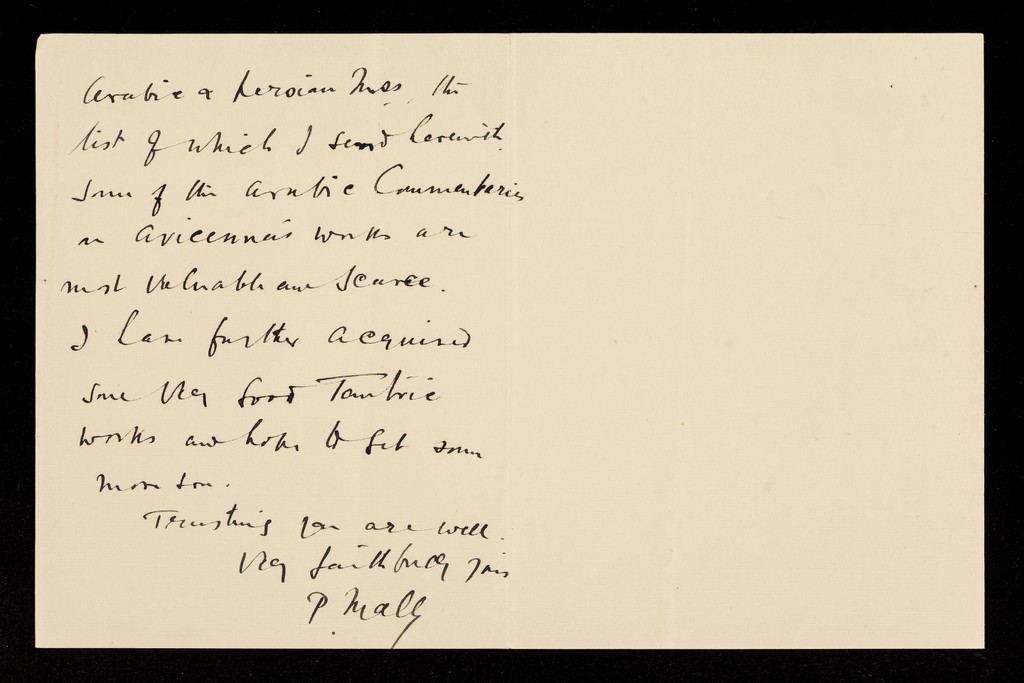 Arabic & Persian Mss, the
list of which I send herewith.
Some of the Arabic Commentaries
on Avicenna's works are
most valuable and scarce.
I have further acquired
some very good Tantric
works and hope to get some
more soon.
Trusting you are well.
Very faithfully yours
P. Mall